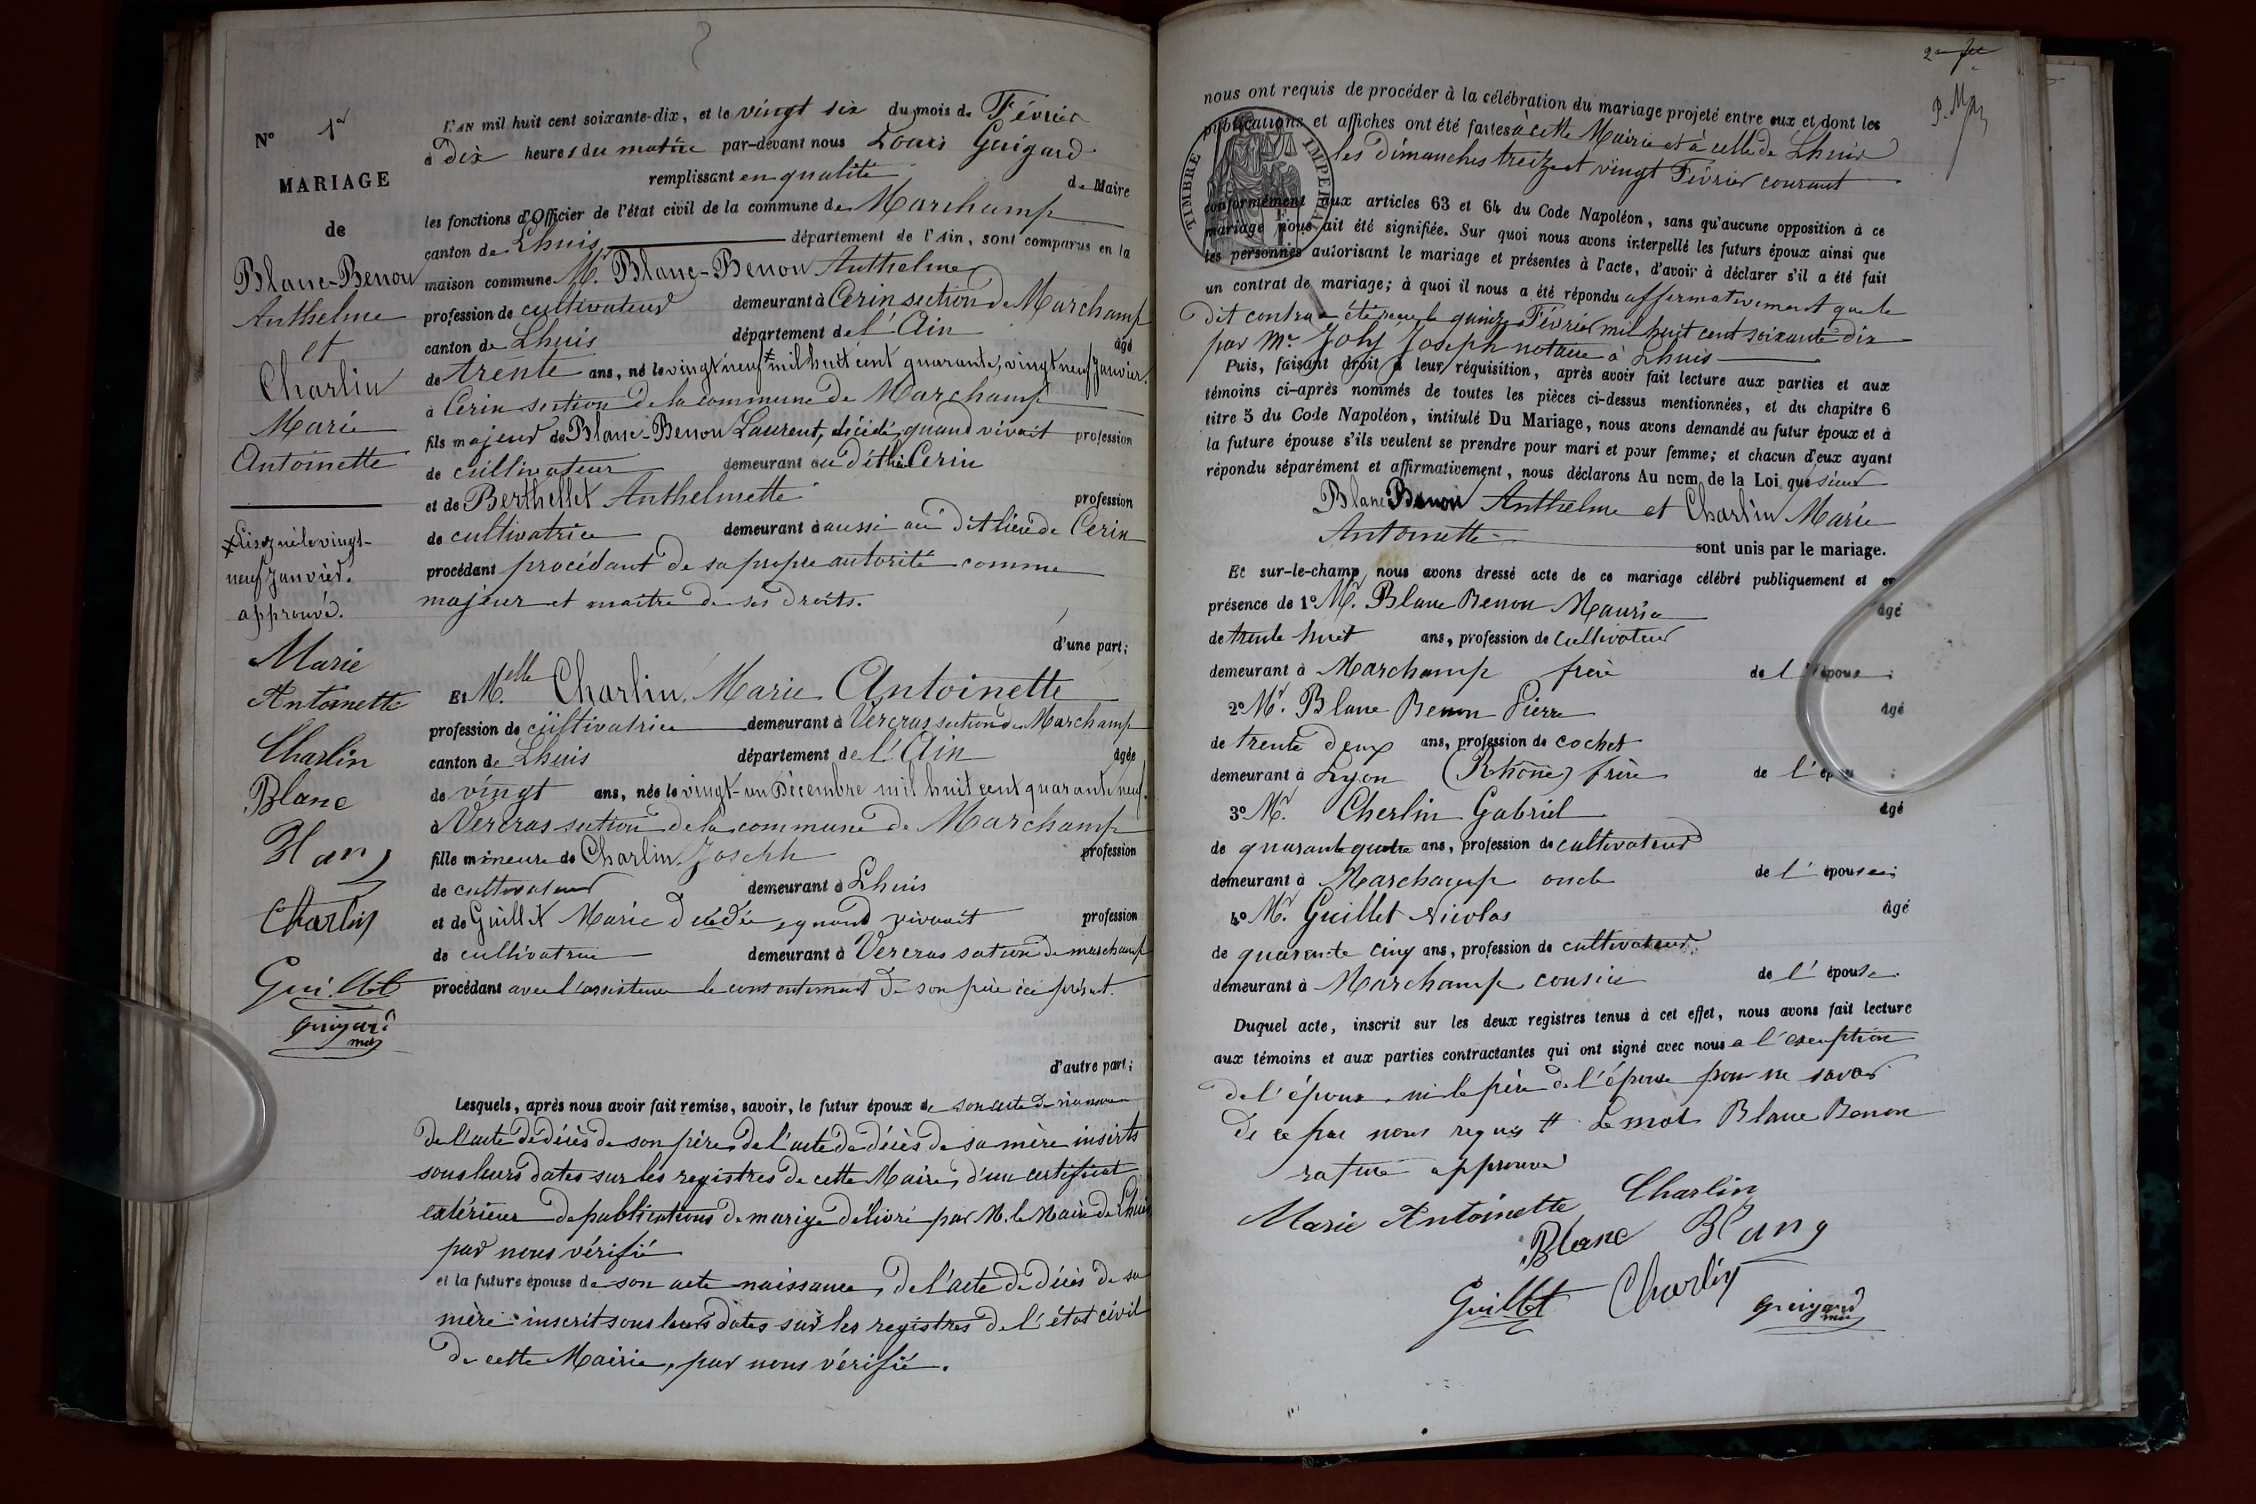 N° 1er
MARIAGE
de
Blanc-Benon
Anthelme
et
Charlin
Marie
Antoinette
Lisez né le vingt-
neuf Janvier.
approuvé.
Marie
Antoinette
Charlin
Blanc
Blanc
Charlin
Guillet
Guigard
L'AN mil huit cent soixante-dix, et le vingt six du mois de Février
à Dix heures du matin par-devant nous Louis Guigard
remplissant en qualité de Maire
les fonctions d'Officier de l'état civil de la commune de Marchamp
canton de Lhuis département de l'Ain, sont comparus en la
maison commune Mr. Blanc-Benon Anthelme
profession de cultivateur demeurant à Cerin section de Marchamp
canton de Lhuis département de l'Ain âgé
de trente ans, né le vingt neuf mil huit cent quarante, vingt neuf Janvier.
à Cerin section de la commune de Marchamp
fils majeur de Blanc-Benon Laurent, décédé, quand vivait profession
de cultivateur demeurant au dit Cerin
et de Berthellet Anthelmette profession
de cultivatrice demeurant à aussi au dit lieu de Cerin
procédant procédant de sa propre autorité comme
majeur et maitre de ses droits.
d'une part;
Et Melle Charlin, Marie Antoinette
profession de cultivatrice demeurant à Vercras section de Marchamp
canton de Lhuis département de l'Ain âgée
de vingt ans, née le vingt-un Décembre mil huit cent quarante neuf.
à Vercras section de la commune de Marchamp
fille mineure de Charlin Joseph profession
de cultivateur demeurant à Lhuis
et de Guillet Marie décédée, quand vivait profession
de cultivatrice demeurant à Vercras section de marchamp
procédant avec l'assistance le consentement de son père ici présent.
d'autre part;
Lesquels, après nous avoir fait remise, savoir, le futur époux de son acte de naissance
de l'acte de décès de son père, de l'acte de décès de sa mère inscrits
sous leurs dates sur les registres de cette Mairie, d'un certificat
extérieur de publications de mariage délivré par M. le Maire de Lhuis
par nous vérifié
et la future épouse de son acte naissance, de l'acte de décès de sa
mère inscrit sous leurs dates sur les registres de l'état civil
de cette Mairie, par nous vérifié.
nous ont requis de procéder à la célébration du mariage projeté entre eux et dont les
publications et affiches ont été faites à cette Mairie et à celle de Lhuis
les dimanches treize et vingt Février courant
TIMBRE IMPERIAL
conformément aux articles 63 et 64 du Code Napoléon, sans qu'aucune opposition à ce
mariage nous ait été signifiée. Sur quoi nous avons interpellé les futurs époux ainsi que
les personnes autorisant le mariage et présentes à l'acte, d'avoir à déclarer s'il a été fait
un contrat de mariage; à quoi il nous a été répondu affirmativement que le
dit contrat a été reçu le quinze Février mil huit cent soixante dix
par Me Joly Joseph notaire à Lhuis
Puis, faisant droit à leur réquisition, après avoir fait lecture aux parties et aux
témoins ci-après nommés de toutes les pièces ci-dessus mentionnées, et du chapitre 6
titre 5 du Code Napoléon, intitulé Du Mariage, nous avons demandé au futur époux et à
la future épouse s'ils veulent se prendre pour mari et pour femme; et chacun d'eux ayant
répondu séparément et affirmativement, nous déclarons Au nom de la Loi que sieur
Blanc Benon Anthelme et Charlin Marie
Antoinette sont unis par le mariage.
Et sur-le-champ nous avons dressé acte de ce mariage célébré publiquement et en
présence de 1° Mr. Blanc Benon Maurice âgé
de trente huit ans, profession de Cultivateur
demeurant à Marchamp frère de l'époux;
2° Mr. Blanc Benon Pierre âgé
de trente deux ans, profession de cochet
demeurant à Lyon (Rhône) frère de l'époux;
3° Mr. Cherlin Gabriel âgé
de quarante quatre ans, profession de cultivateur
demeurant à Marchamp oncle de l'épouse;
4° Mr. Guillet Nicolas âgé
de quarante cinq ans, profession de cultivateur
demeurant à Marchamp cousin de l'épouse.
Duquel acte, inscrit sur les deux registres tenus à cet effet, nous avons fait lecture
aux témoins et aux parties contractantes qui ont signé avec nous a l'exception
de l'époux, ni le père de l'épouse pour ne savoir
de ce par nous requis # Le mot Blanc Benon
raturé approuvé
Marie Antoinette Charlin
Blanc Blanc
Guillet Charlin Guigard